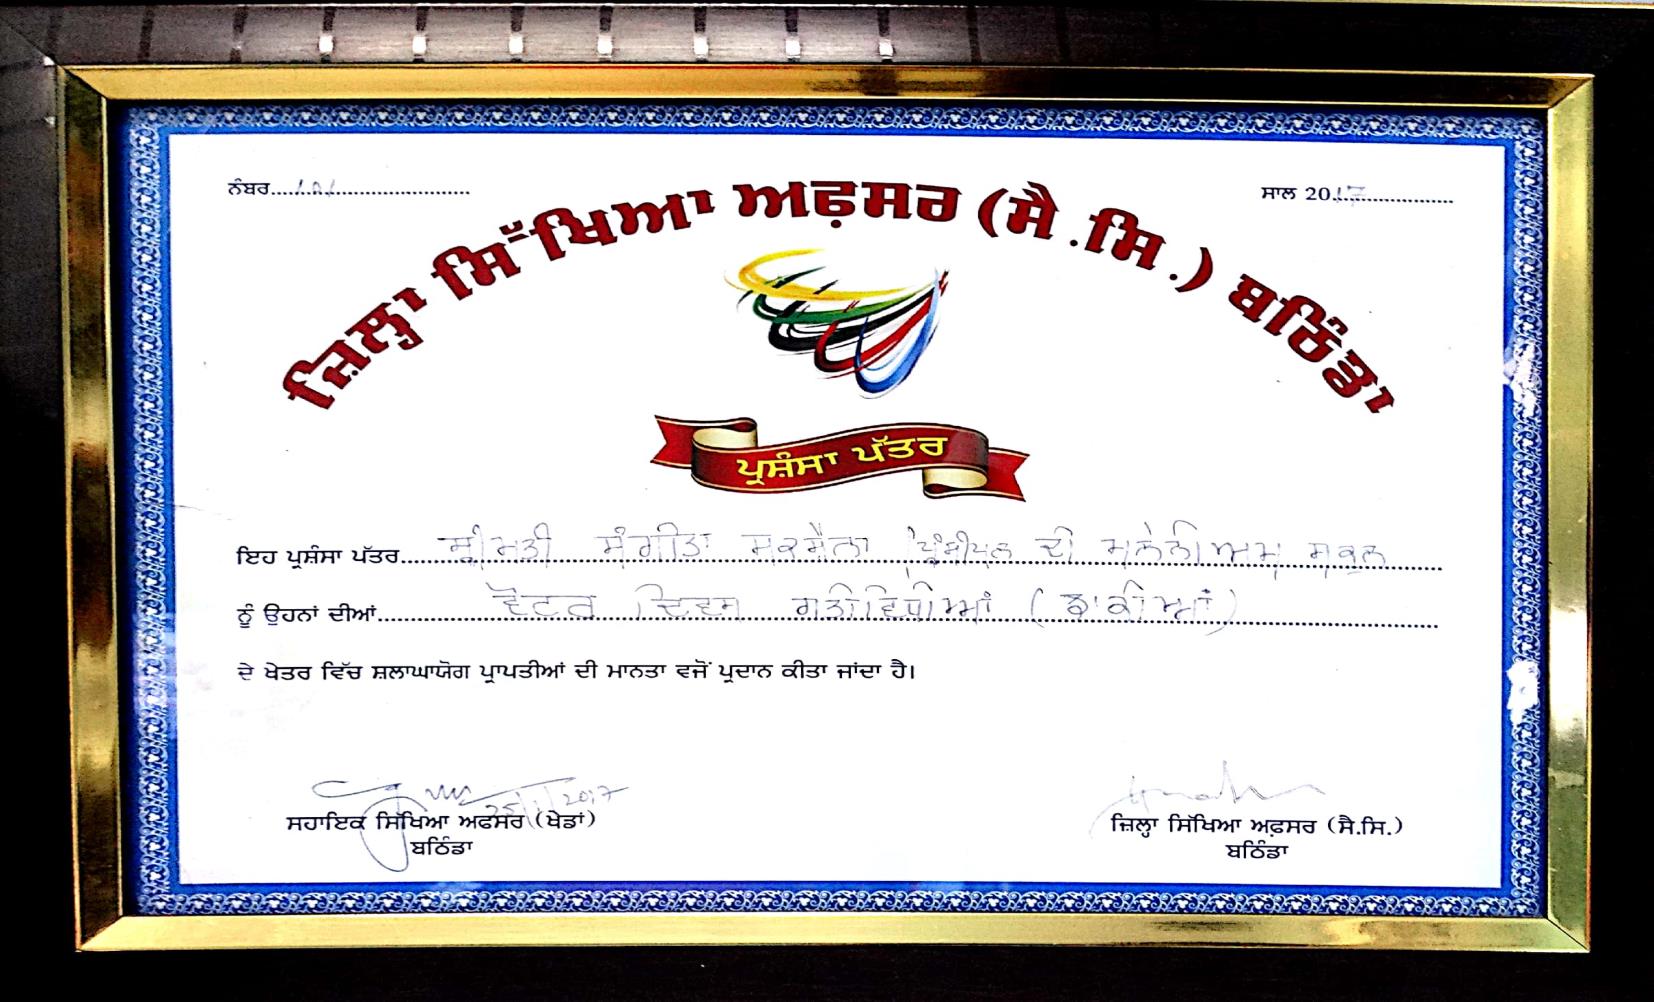 ਨੰਬਰ....101....
ਸਾਲ 2017....
ਜ਼ਿਲ੍ਹਾ ਸਿੱਖਿਆ ਅਫ਼ਸਰ (ਸੈ.ਸਿ.) ਬਠਿੰਡਾ
ਪ੍ਰਸ਼ੰਸਾ ਪੱਤਰ
ਇਹ ਪ੍ਰਸ਼ੰਸਾ ਪੱਤਰ.... ਸ੍ਰੀਮਤੀ ਸੰਗੀਤਾ ਸਕਸੈਨਾ ਪ੍ਰਿੰਸੀਪਲ ਦੀ ਮਲੇਨੀਅਮ ਸਕੂਲ
ਨੂੰ ਉਹਨਾਂ ਦੀਆਂ.... ਵੋਟਰ ਦਿਵਸ ਗਤੀਵਿਧੀਆਂ (ਝਾਕੀਆਂ)
ਦੇ ਖੇਤਰ ਵਿੱਚ ਸ਼ਲਾਘਾਯੋਗ ਪ੍ਰਾਪਤੀਆਂ ਦੀ ਮਾਨਤਾ ਵਜੋਂ ਪ੍ਰਦਾਨ ਕੀਤਾ ਜਾਂਦਾ ਹੈ।
25/1/2017
ਸਹਾਇਕ ਸਿੱਖਿਆ ਅਫਸਰ (ਖੇਡਾਂ)
ਬਠਿੰਡਾ
ਜ਼ਿਲ੍ਹਾ ਸਿੱਖਿਆ ਅਫ਼ਸਰ (ਸੈ.ਸਿ.)
ਬਠਿੰਡਾ